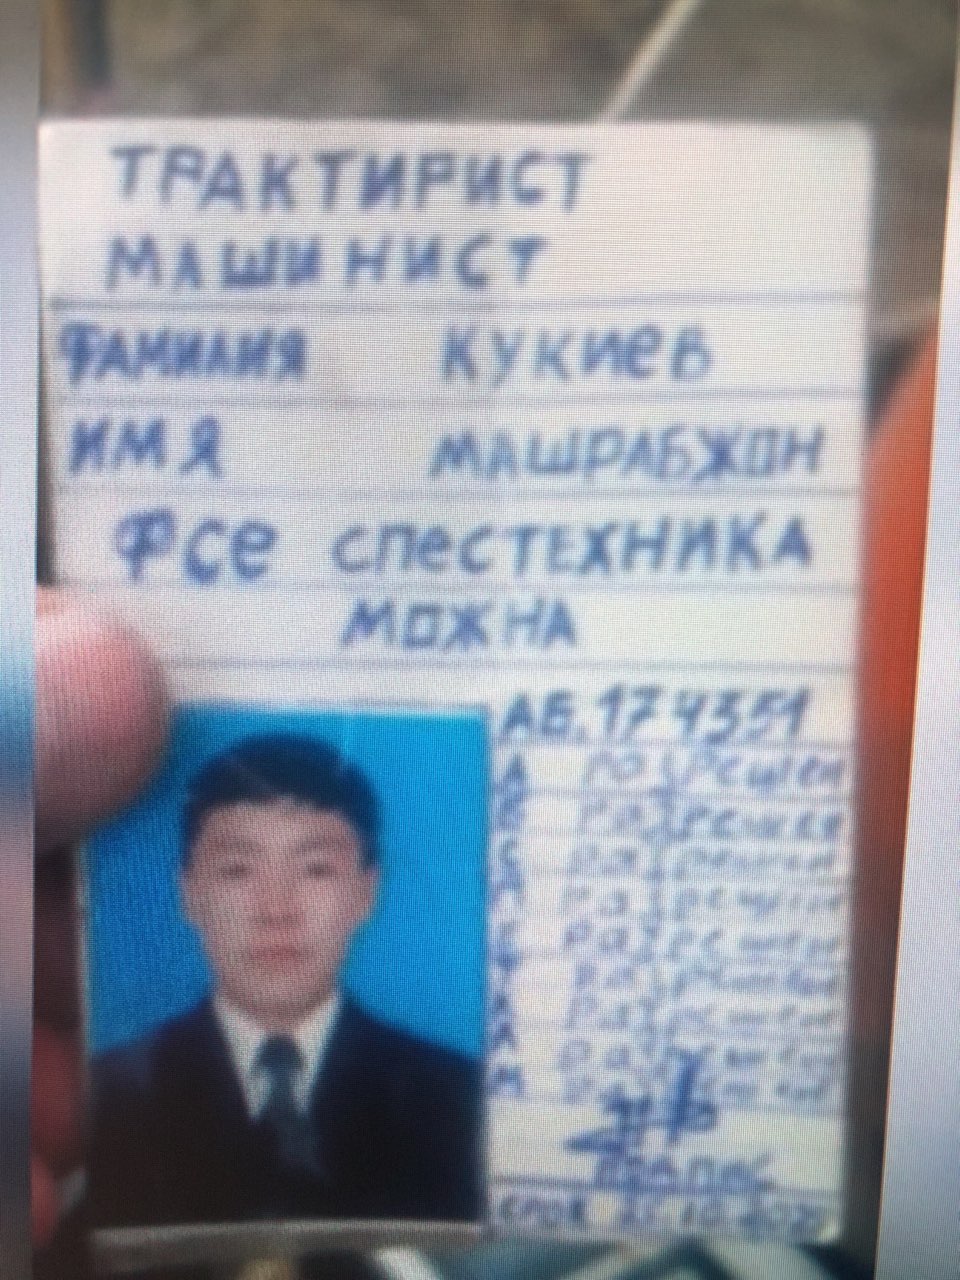 ТРАКТИРИСТ
МАШИНИСТ
ФАМИЛИЯ КУКИЕВ
ИМЯ МАШРАБЖОН
ФСЕ СПЕСТЕХНИКА
МОЖНА
АБ.174351
А разрешен
В разрешен
С разрешен
разрешен
разрешен
разрешен
разрешен
разрешен
М
СРОК